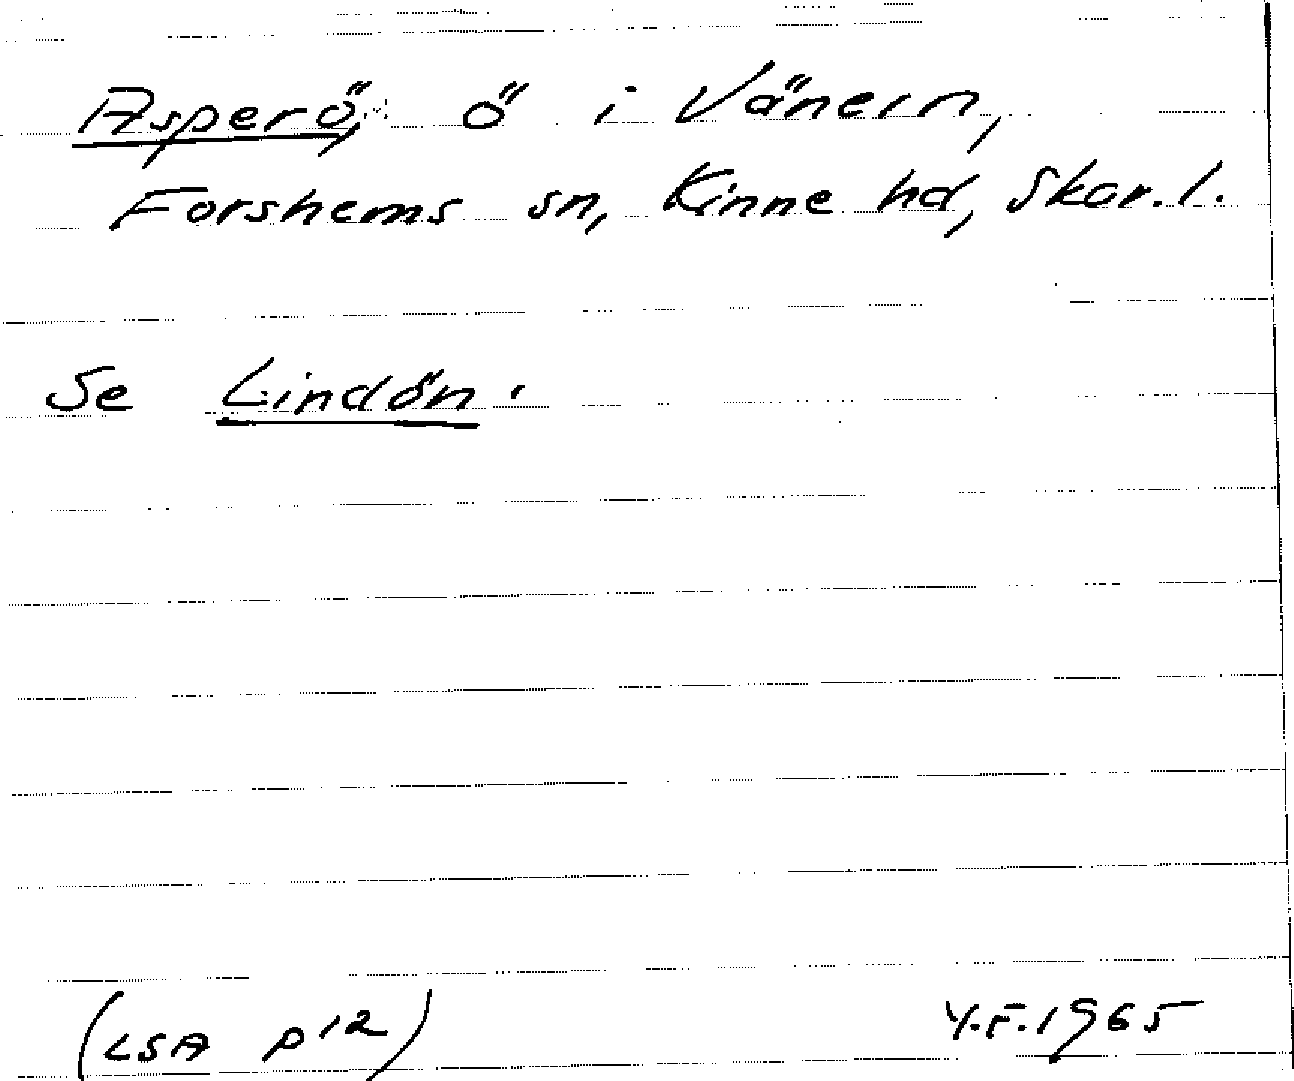 Asperö, ö i Vänern,
Forshems sn, Kinne hd, Skar. l.
Se Lindön.
(LSA P 12)
Y.F. 1965